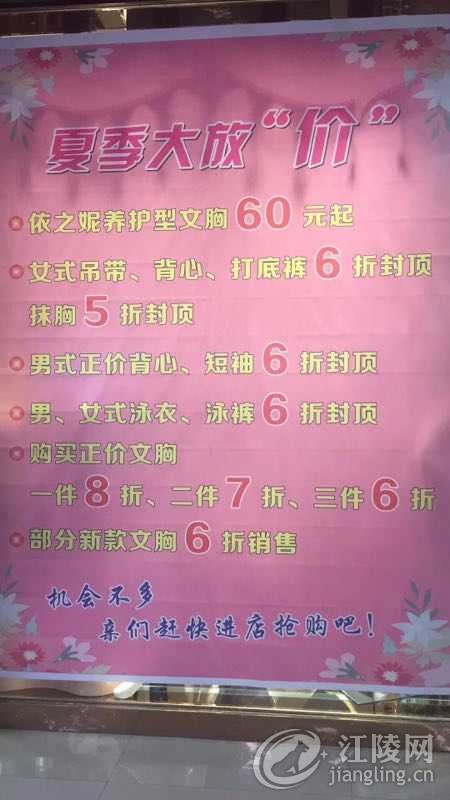 夏季大放“价”
依之妮养护型文胸60元起
女式吊带、背心、打底裤6折封顶
抹胸5折封顶
男式正价背心、短袖6折封顶
男、女式泳衣、泳裤6折封顶
购买正价文胸
一件8折、二件7折、三件6折
部分新款文胸6折销售
机会不多
亲们赶快进店抢购吧！
江陵网
jiangling.cn